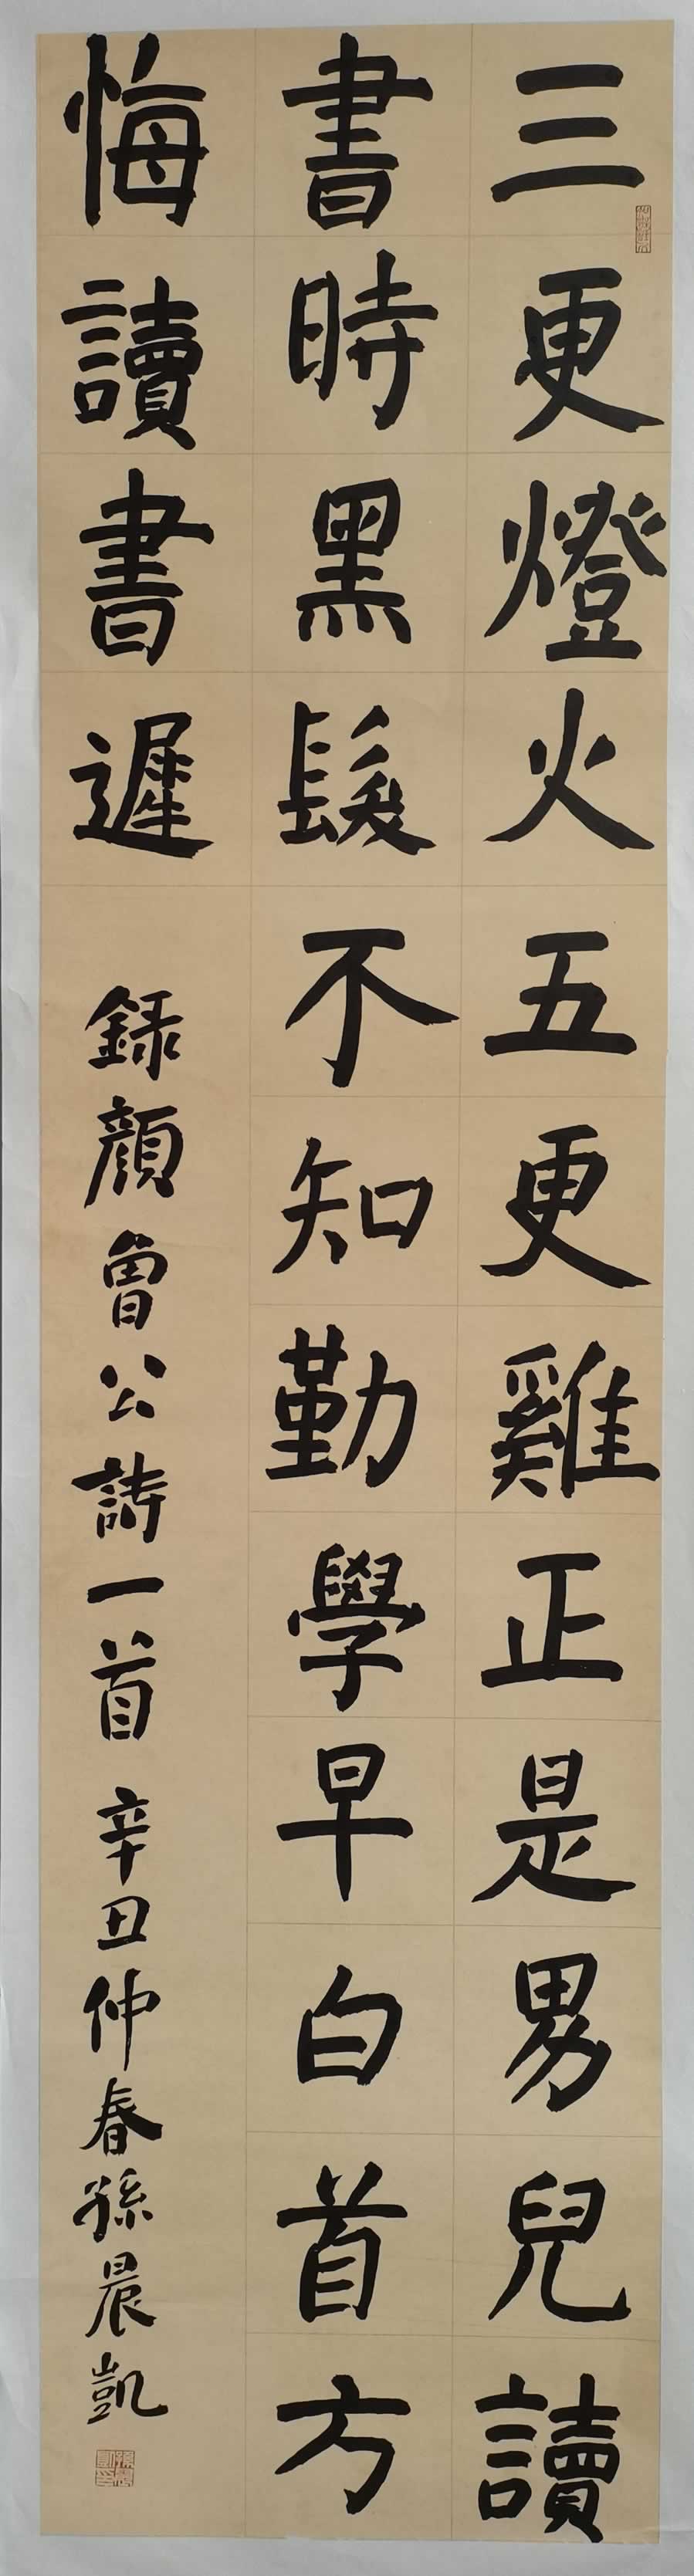 三更燈火五更雞正是男兒讀
書時黑髮不知勤學早白首方
悔讀書遲
錄顏魯公詩一首 辛丑仲春孫晨凱